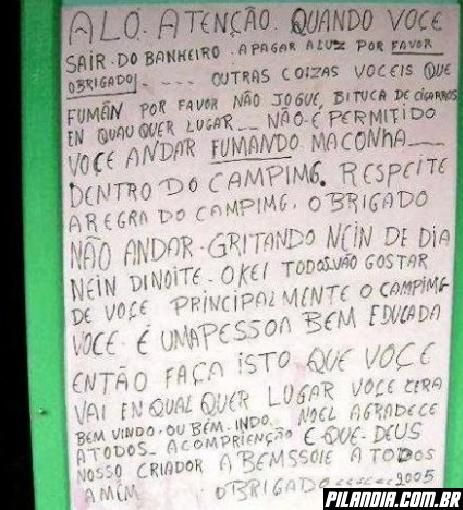 ALÔ. ATENÇÃO. QUANDO VOCE
SAIR. DO BANHEIRO. APAGAR ALUZ POR FAVOR
OBRIGADO ..... OUTRAS COIZAS VOCEIS QUE
FUMÃN POR FAVOR NÃO JOGUE, BITUCA DE CIGARROS
EN QUAU QUER LUGAR __ NÃO É PERMITIDO
VOCE ANDAR FUMANDO MACONHA __
DENTRO DO CAMPIMG. RESPEITE
AREGRA DO CAMPIMG. OBRIGADO
NÃO ANDAR. GRITANDO NEIN DE DIA
NEIN DINOITE. OKEI TODOS VÃO GOSTAR
DE VOCE PRINCIPALMENTE O CAMPIMG
VOCE É UMAPESSOA BEM EDUCADA
ENTÃO FAÇA ISTO QUE VOCE
VAI EN QUAL QUER LUGAR VOCE CERA
BEM VINDO. OU BEM. INDO. NOEL AGRADECE
ATODOS. ACOMPRIENÇÃO E QUE. DEUS
NOSSO CRIADOR ABEMSSOIE A TODOS
AMÉM OBRIGADO ...... 2005
PILANDIA.COM.BR